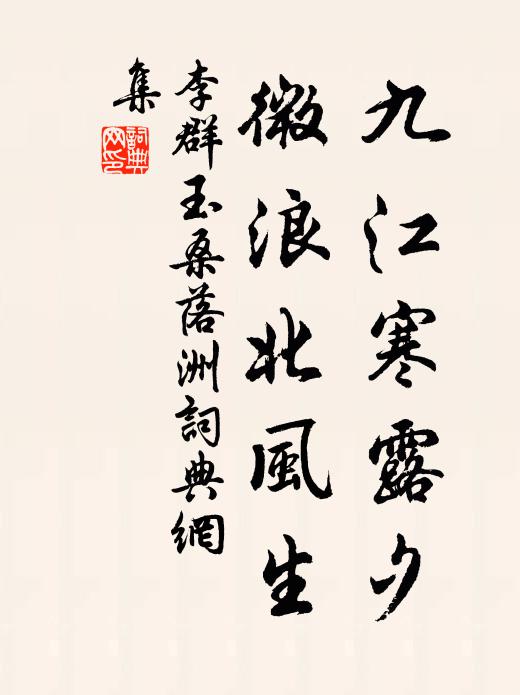 九江寒露夕
微浪北風生
李群玉桑落洲詞典網
集
詞典
网印